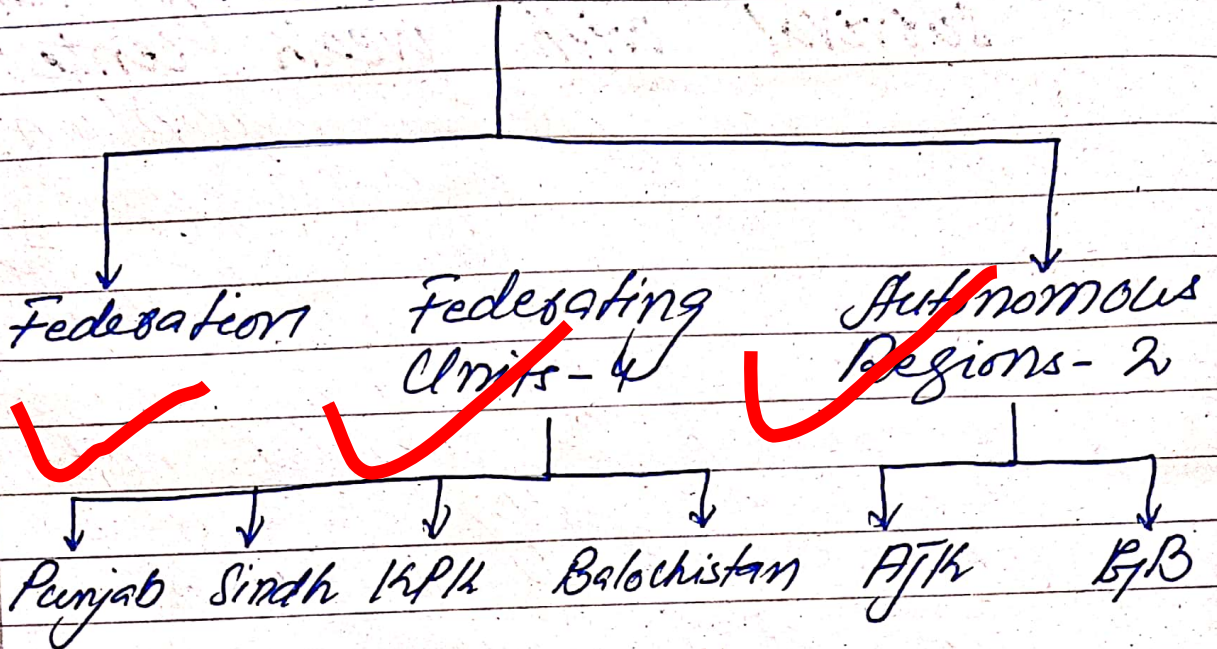 Federation
Federating
Units - 4
Autonomous
Regions - 2
Punjab Sindh KPK Balochistan AJK GB